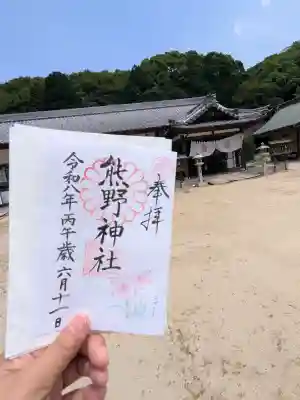 奉拝
熊野神社
令和八年丙午歳六月十一日